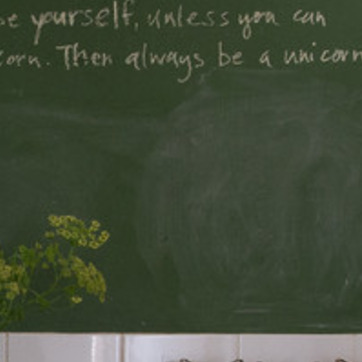 be yourself, unless you can
corn. Then always be a unicorn